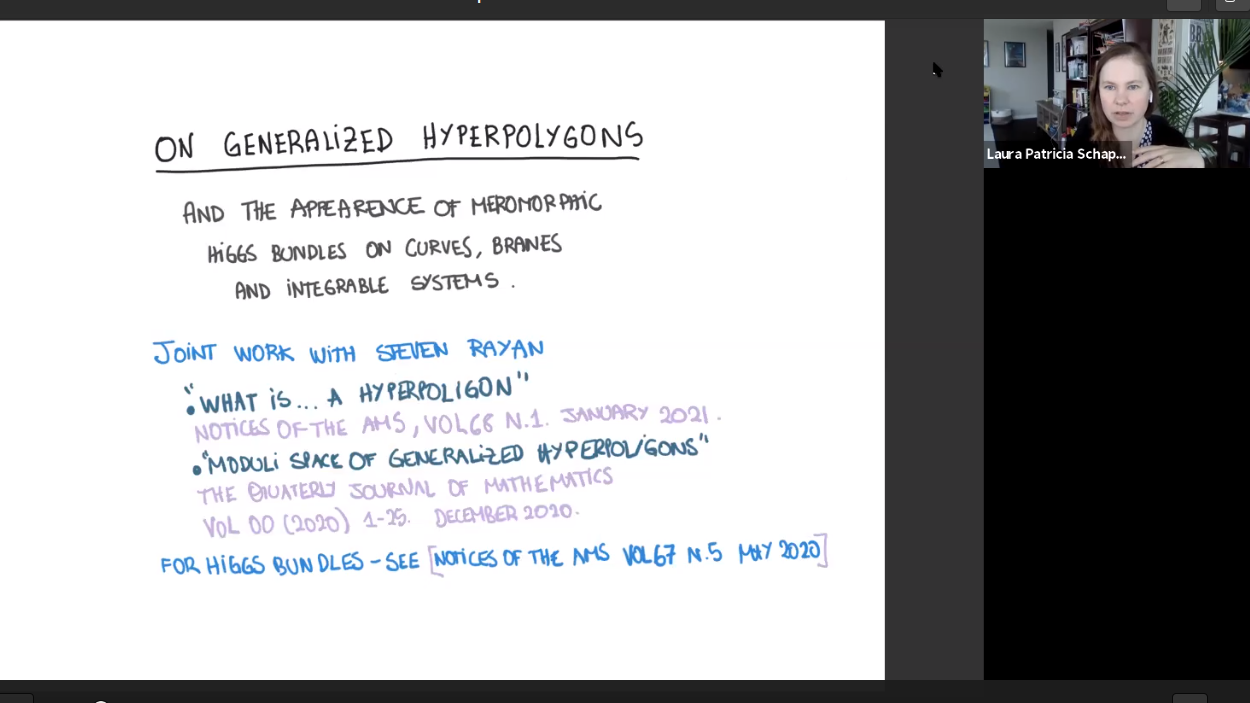 ON GENERALIZED HYPERPOLYGONS
AND THE APPEARENCE OF MEROMORPHIC
HIGGS BUNDLES ON CURVES, BRANES
AND INTEGRABLE SYSTEMS.
JOINT WORK WITH STEVEN RAYAN
• "WHAT IS... A HYPERPOLIGON"
NOTICES OF THE AMS, VOL 68 N.1. JANUARY 2021.
• "MODULI SPACE OF GENERALIZED HYPERPOLIGONS"
THE QUATERLY JOURNAL OF MATHEMATICS
VOL 00 (2020) 1-25. DECEMBER 2020.
FOR HIGGS BUNDLES - SEE [NOTICES OF THE AMS VOL 67 N.5 MAY 2020]
Laura Patricia Schap...